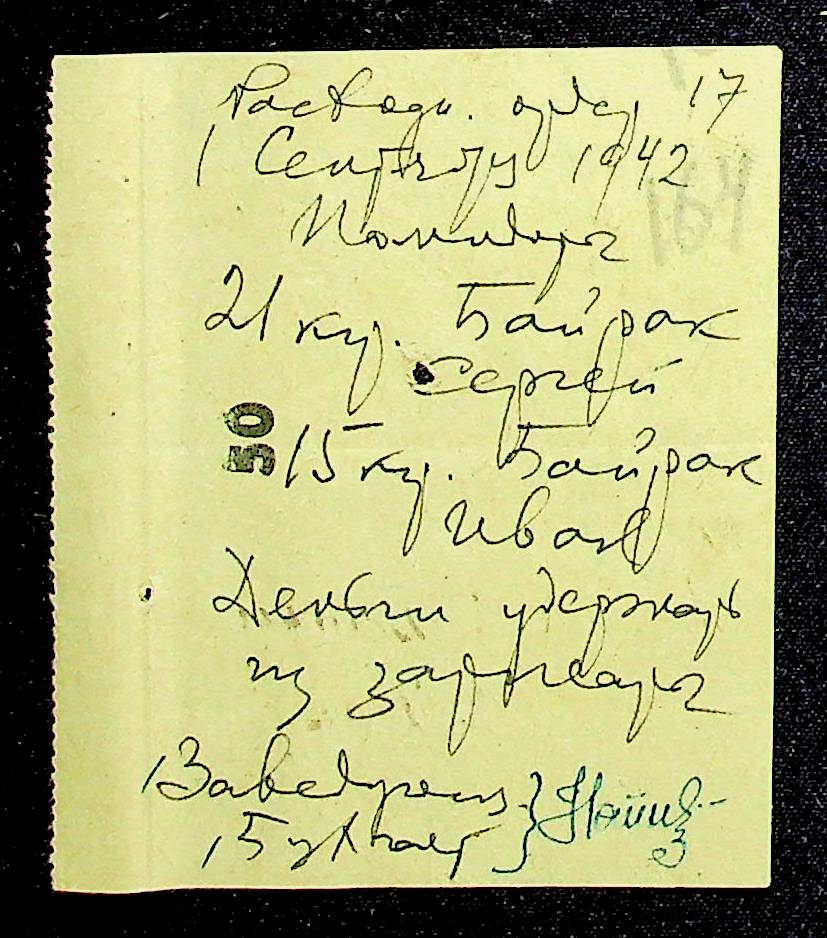 Расходн. ордер 17
1 Сентября 1942
Помидоры
21 кг. Байрак
Сергей
50
15 кг. Байрак
Иван
Деньги удержать
из зарплаты
Заведующ
Бухгалт